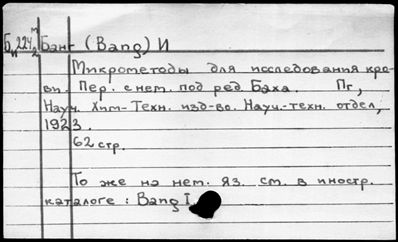 Б 224 Банг (Bang) И
Микрометоды для исследования кро-
ви. Пер. с нем. под ред. Баха. Пг,
Науч. Хим-Техн. изд-во. Науч.-техн. отдел,
1923.
62 стр.
То же на нем. яз. см. в иностр.
каталоге: Bang I.